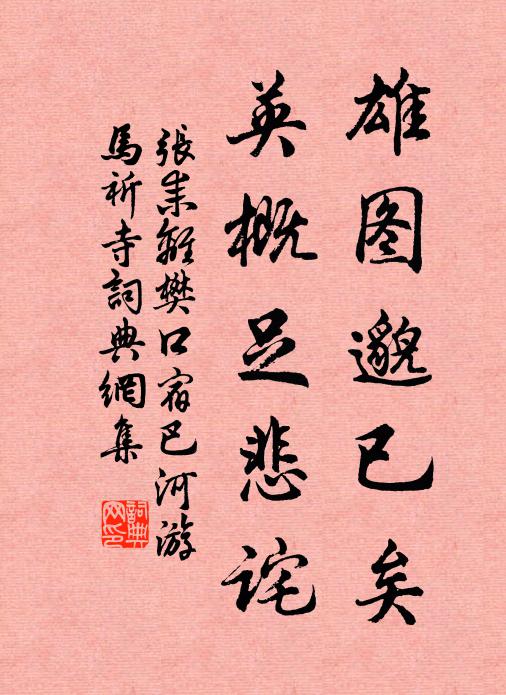 雄图邈已矣
英概足悲诧
張耒離樊口宿巴河游
馬祈寺詞典網集
詞典网印